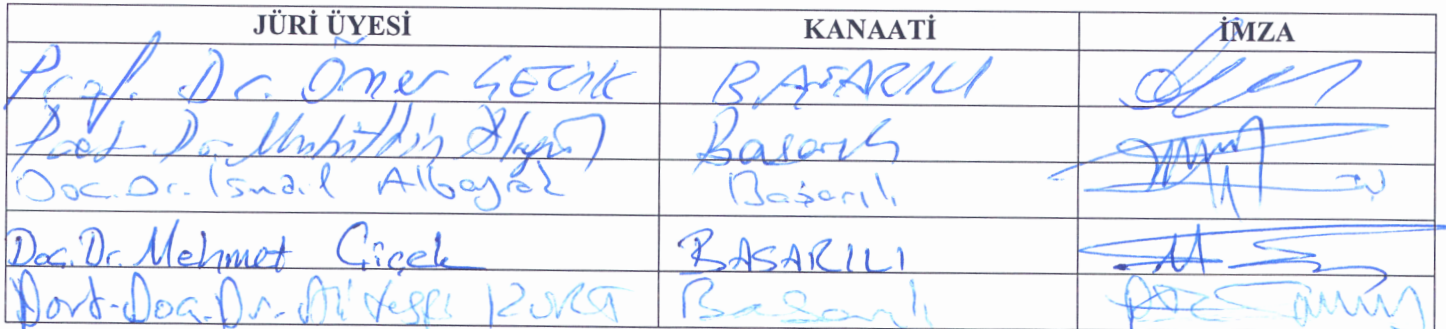 JÜRİ ÜYESİ KANAATİ İMZA
Prof. Dr. Ömer ÇELİK BAŞARILI
Prof. Dr. Muhittin Basarılı
Doc. Dr. İsmail Albayrak Başarılı
Doç. Dr. Mehmet Çiçek BASARILI
Doç. Dr. KURT Basarılı